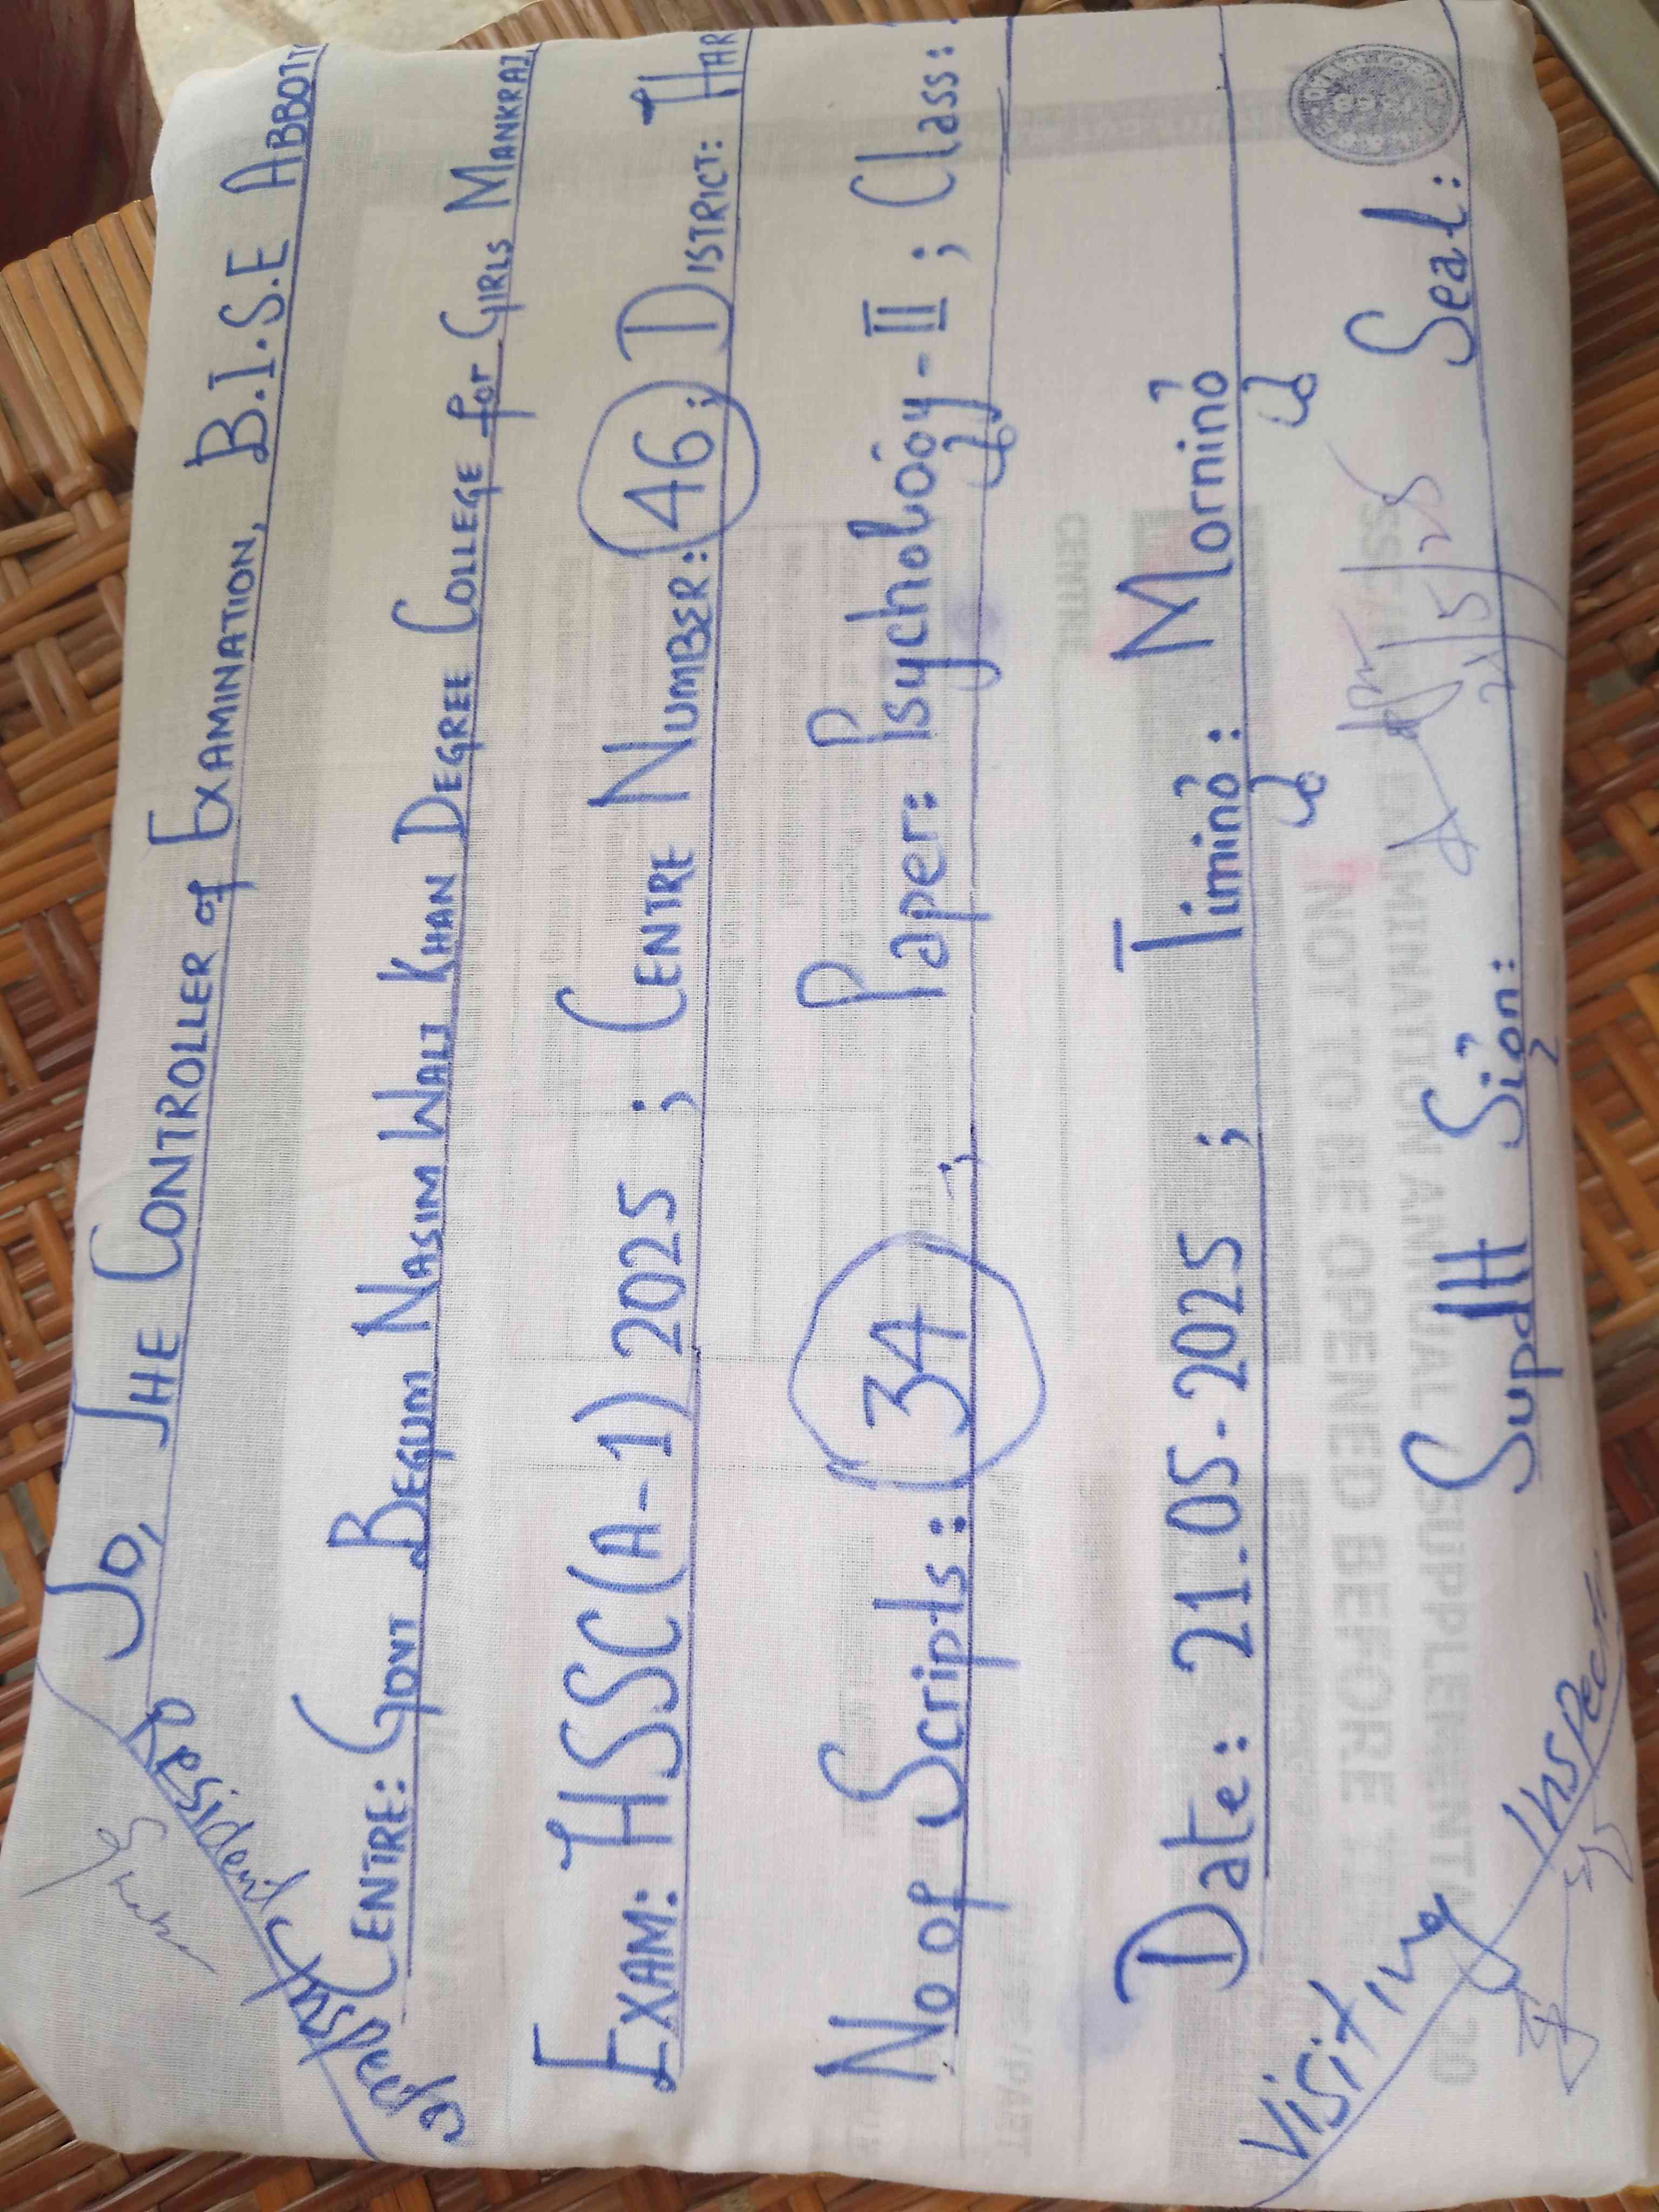 To, The Controller of Examination, B.I.S.E Abbott
Resident
Centre: Govt Begum Nasim Wali Khan Degree College for Girls Mankrai
Exam: HSSC(A-1) 2025 ; Centre Number: 46; District: Har
No of Scripts: 34 ; Paper: Psychology-II ; Class:
Date: 21.05.2025 ; Timing: Morning
Supdtt Sign: Seal:
Visiting Inspector
NOT TO BE OPENED BEFORE
EXAMINATION ANNUAL SUPPLEMENTA
CENTRE